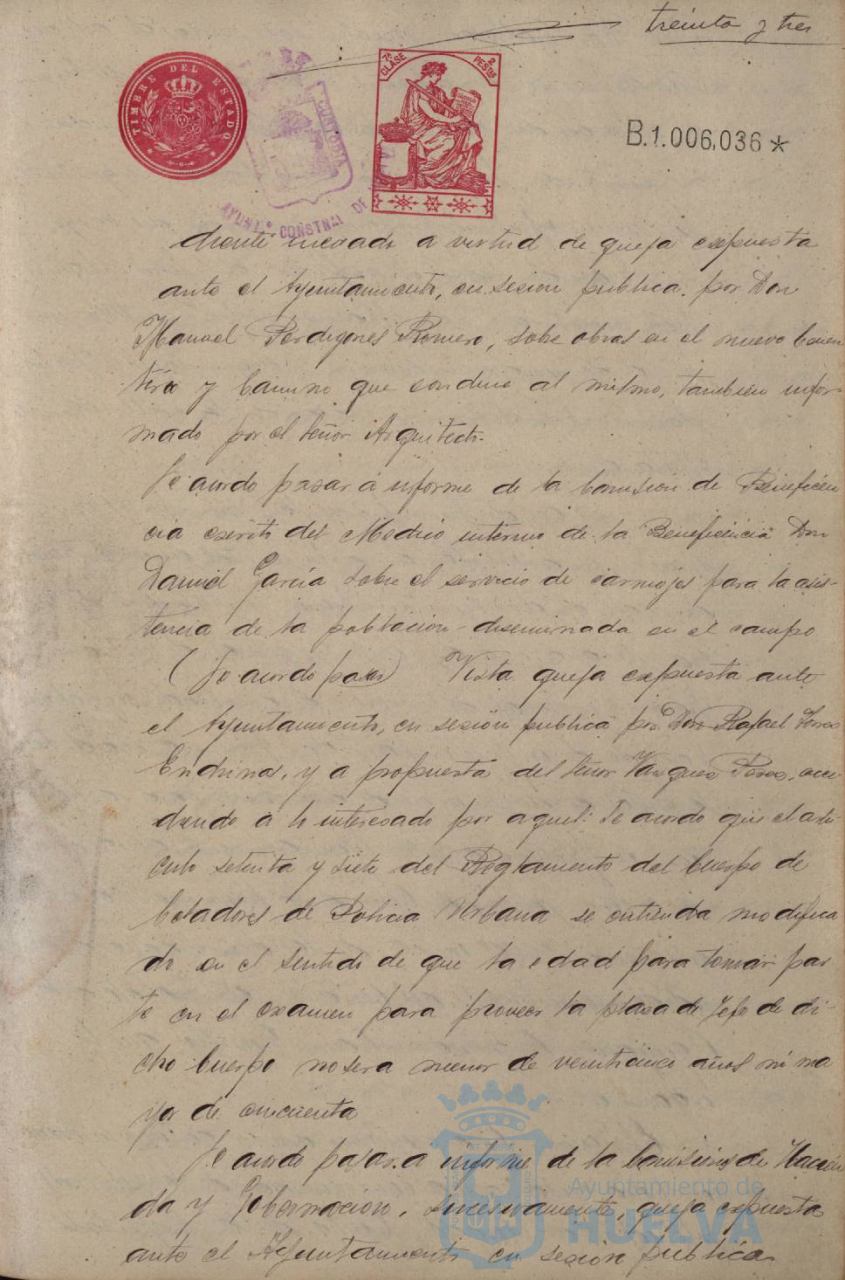 treinta y tres
TIMBRE DEL ESTADO
7ª CLASE 2 PESTAS
B.1.006,036*
AYUNT.º CONSTNAL DE
diente incoado a virtud de queja expuesta
ante el Ayuntamiento, en sesion publica, por Don
Manuel Perdigones Romero, sobre obras en el nuevo Cemen
terio y Camino que conduce al mismo, tambien infor-
mado por el Señor Arquitecto.
Se acordo pasar á informe de la Comision de Beneficen
cia escrito del Medico interino de la Beneficencia Don
Daniel García sobre el servicio de carruajes para la asis-
tencia de la poblacion diseminada en el campo
(Se acordo pasar) Vista queja expuesta ante
el Ayuntamiento, en sesión publica por Don Rafael
Endrina, y a propuesta del Señor Vazquez Perez, acce
diendo á lo interesado por aquel: Se acordo que el artí
culo setenta y siete del Reglamento del Cuerpo de
Celadores de Policia Urbana se entienda modifica
do en el sentido de que la edad para tomar par
te en el examen para proveer la plaza de Jefe de di-
cho Cuerpo no sera menor de veinticinco años ni ma
yor de cincuenta
Se acordo pasar a informe de la Comisiones de Hacien
da y Gobernacion, sucesivamente, queja expuesta
ante el Ayuntamiento en sesión publica
Ayuntamiento de
HUELVA